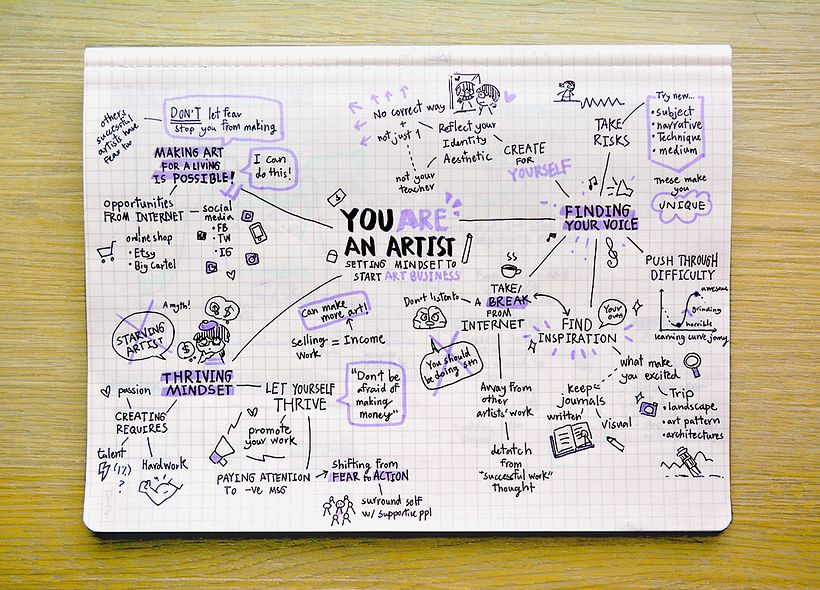 YOU ARE
AN ARTIST
SETTING MINDSET TO
START ART BUSINESS
MAKING ART
FOR A LIVING
IS POSSIBLE!
DON'T let fear
stop you from making
others
successful
artists have
fear too
I can
do this!
opportunities
FROM INTERNET
online shop
• Etsy
• Big Cartel
social
media
• FB
• TW
• IG
THRIVING
MINDSET
A myth!
STARVING
ARTIST
passion
CREATING
REQUIRES
talent
(1%)
?
Hardwork
LET YOURSELF
THRIVE
Can make
more art!
Selling
work
= Income
"Don't be
afraid of
making
money"
promote
your work
PAYING ATTENTION
TO -VE MSG
shifting from
FEAR to ACTION
surround self
w/ supportive ppl
FINDING
YOUR VOICE
CREATE
FOR
YOURSELF
Reflect your
Identity
+
Aesthetic
No correct way
+
not just 1
not your
teacher
TAKE
RISKS
Try new...
• subject
• narrative
• Technique
• medium
These make
you
UNIQUE
PUSH THROUGH
DIFFICULTY
awesome
grinding
horrible
learning curve
FIND
INSPIRATION
Your
own
what make
you excited
Trip
• landscape
• art pattern
• architectures
keep
journals
written
visual
TAKE
A BREAK
FROM
INTERNET
Don't listen to
You should
be doing sth
Away from
other
artists' work
detatch
from
"successful work"
thought